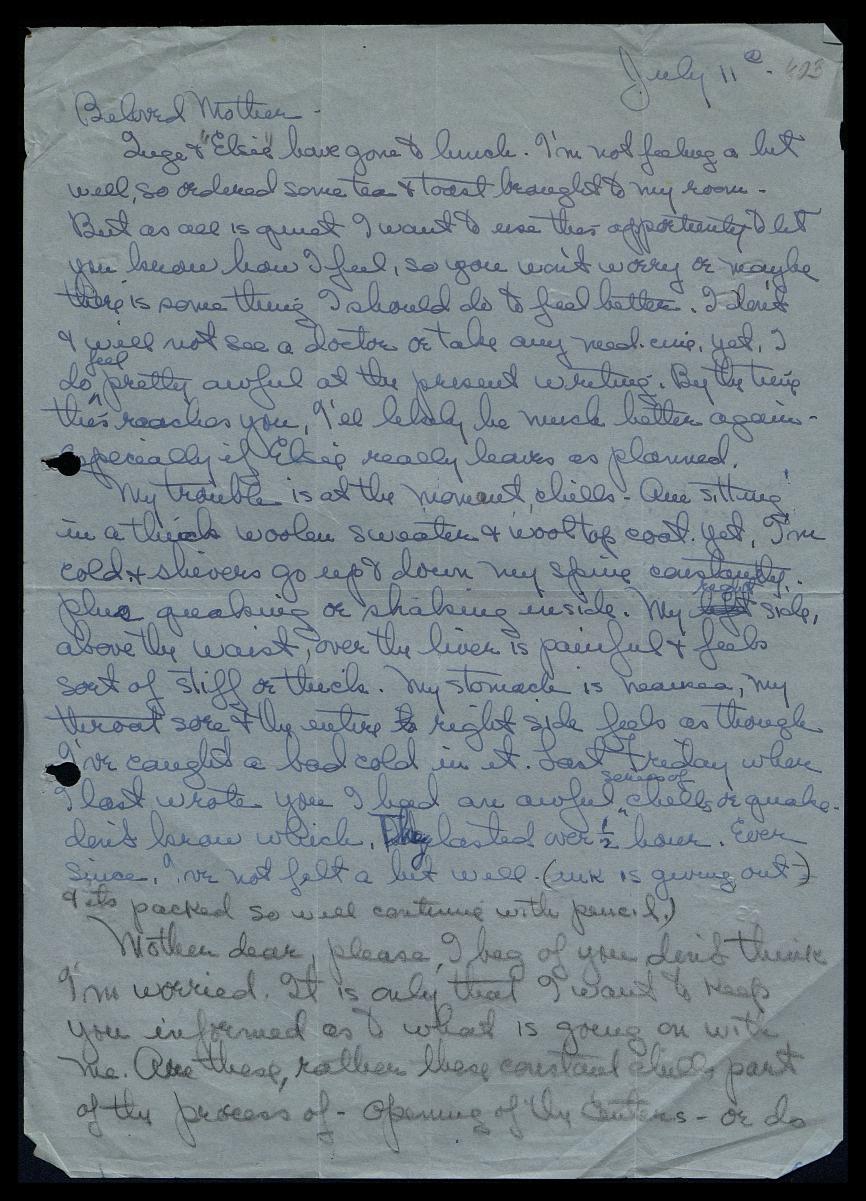 July 11th. 423
Beloved Mother -
Inge & "Elsie" have gone to lunch. I'm not feeling a bit
well, so ordered some tea & toast brought to my room -
But as all is quiet I want to use this opportunity to let
you know how I feel, so you won't worry or maybe
there is something I should do to feel better. I don't
& will not see a doctor or take any medicine, yet, I
do feel pretty awful at the present writing. By the time
this reaches you, I'll likely be much better again -
Especially if Elsie really leaves as planned.
My trouble is at the moment, chills - Am sitting
in a thick woolen sweater & wool top coat. yet, I'm
cold & shivers go up & down my spine constantly.
plus quaking or shaking inside. My right side,
above the waist, over the liver is painful & feels
sort of stiff or thick. My stomach is nausea, my
throat sore & the entire right side feels as though
I've caught a bad cold in it. Last Friday when
I last wrote you I had an awful series of chills or quake -
don't know which. They lasted over 1/2 hour. Ever
since, I've not felt a bit well - (ink is giving out -)
& its packed so will continue with pencil.)
Mother dear, please, I beg of you don't think
I'm worried. It is only that I want to keep
you informed as to what is going on with
me. Are these, rather these constant chills part
of the process of - opening of the Centers - or do